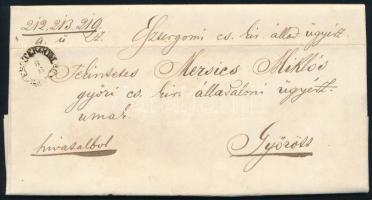 212, 213, 219 Esztergomi cs. kir. állad. ügyész.
a. ü
Tekintetes Mersics Miklós
győri cs. kir. államdalomi ügyész
urnak
hivatalból Győrött